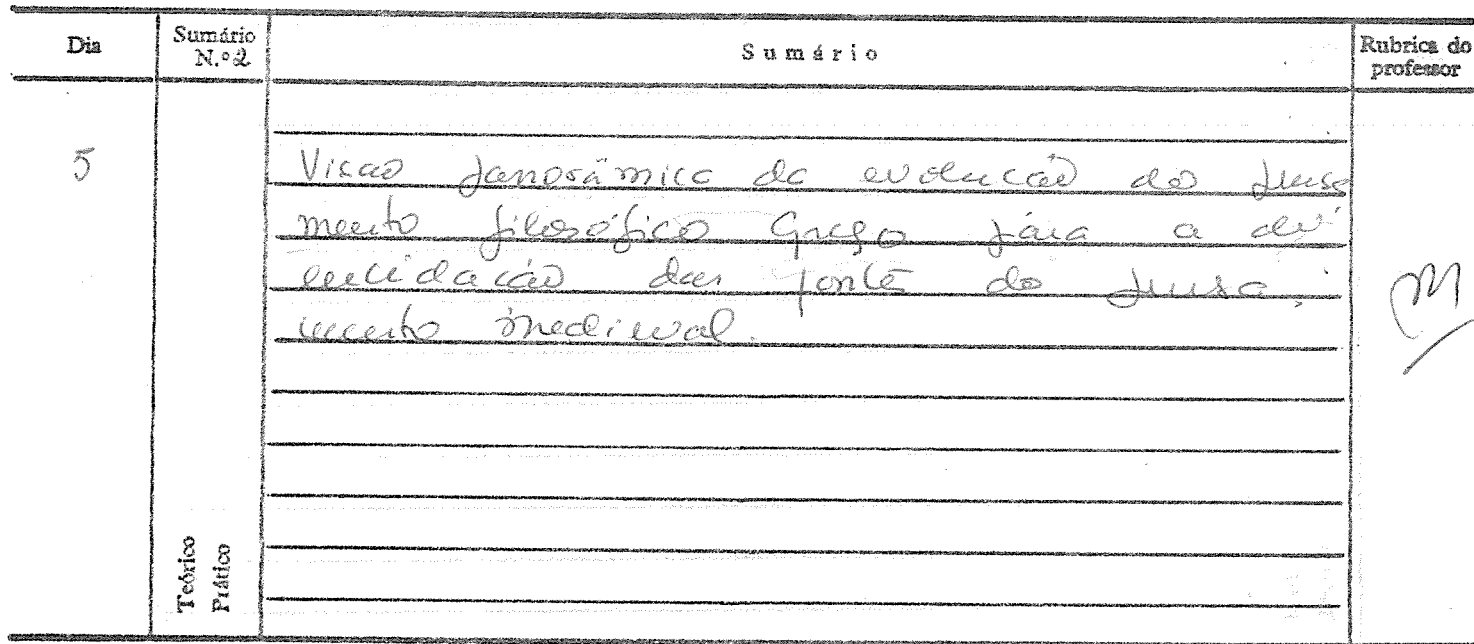 Dia
Sumário N.º 2
Sumário
Rubrica do professor
5
Visão panorâmica da evolução do pensa
mento filosófico Grego para a
elucidação das fontes do pensa-
mento medieval.
Teórico
Prático